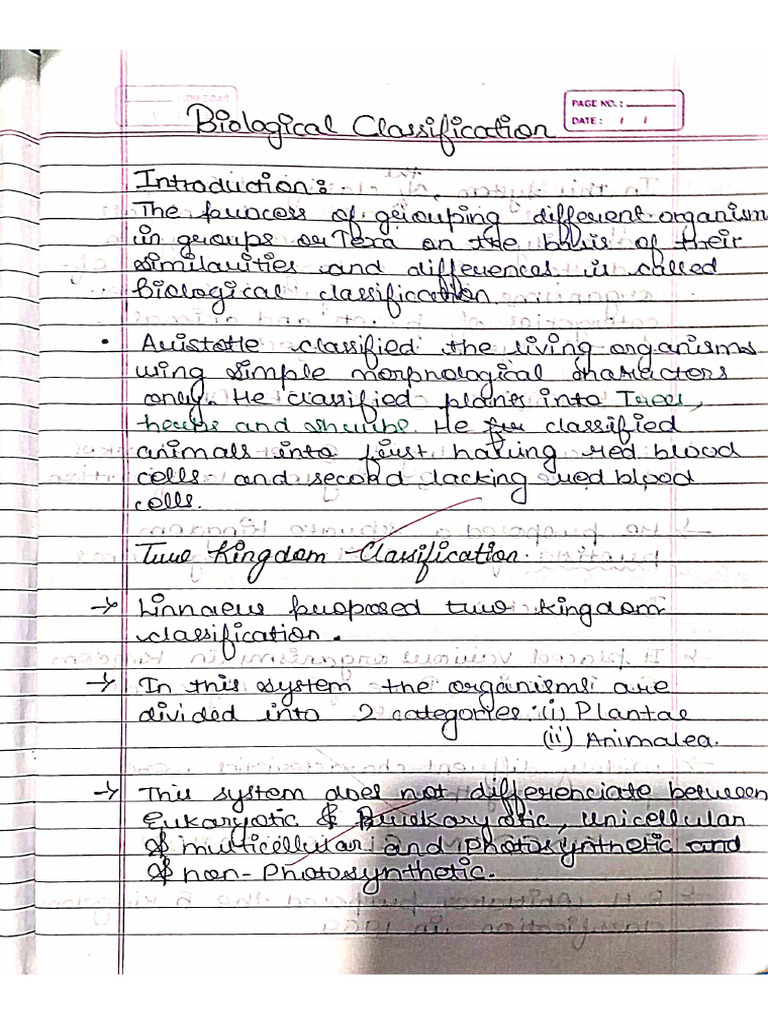 PAGE NO.:
DATE: / /
Biological Classification
Introduction:
The process of geiouping different organism
in groups or Texa on the basis of their
similarities and differences is called
Biological classification
• Aristotle classified the living organisms
using simple morphological characters
only. He classified plants into Trees,
herbs and shrubs. He classified
animals into first having red blood
cells and second lacking red blood
cells.
Two Kingdom Classification.
→ Linnaeus proposed two kingdom
classification.
→ In this system the organisms are
divided into 2 categories: (i) Plantae
(ii) Animalea.
→ This system does not differenciate between
Eukaryotic & Prokaryotic, unicellular
& multicellular and Photosynthetic and
& non-Photosynthetic.